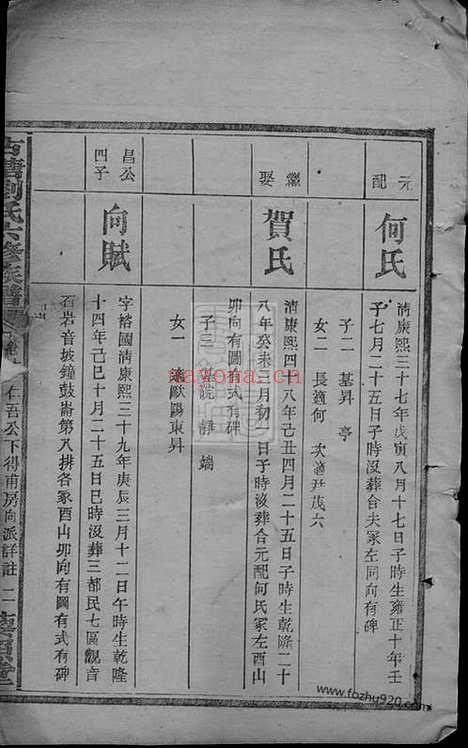 元配
何氏
清康熙三十七年戊寅八月十七日子時生雍正十年壬
子七月二十五日子時沒葬合夫冢左同向有碑
子二 基昇 亭
女二 長適何 次適尹茂六
繼娶
賀氏
清康熙四十八年己丑四月二十五日子時生乾隆二十
八年癸未二月初一日子時沒葬合元配何氏冢左酉山
卯向有圖有式有碑
子三 靜 端
女一 適歐陽東昇
昌公四子
向賦
字裕國清康熙三十九年庚辰三月十二日午時生乾隆
十四年己巳十月二十五日巳時沒葬三都民七區觀音
石岩音坡鐘鼓崙第八排各冢酉山卯向有圖有式有碑
劉氏六修族譜
仁吾公下得甫房向派詳註 二
堂
nayona.cn
www.fozhu920.com